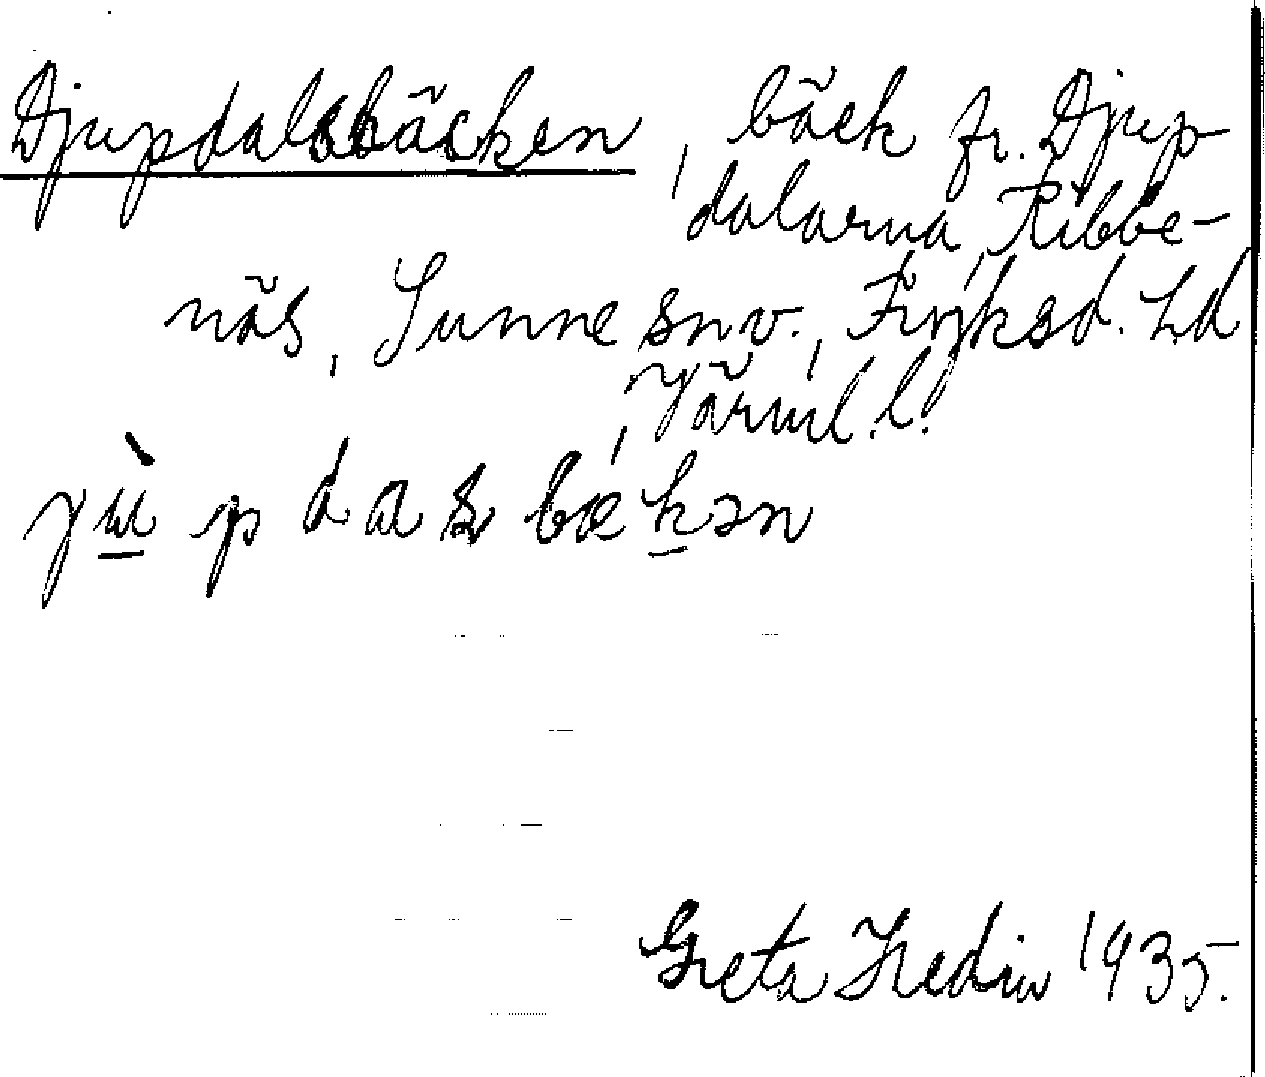 Djupdalsbäcken, bäck fr. Djup-
dalarna, Ribbe-
näs, Sunne snv., Fryksd. hd
, Värml. l.
jùpdasbækən
Greta Hedin 1935.